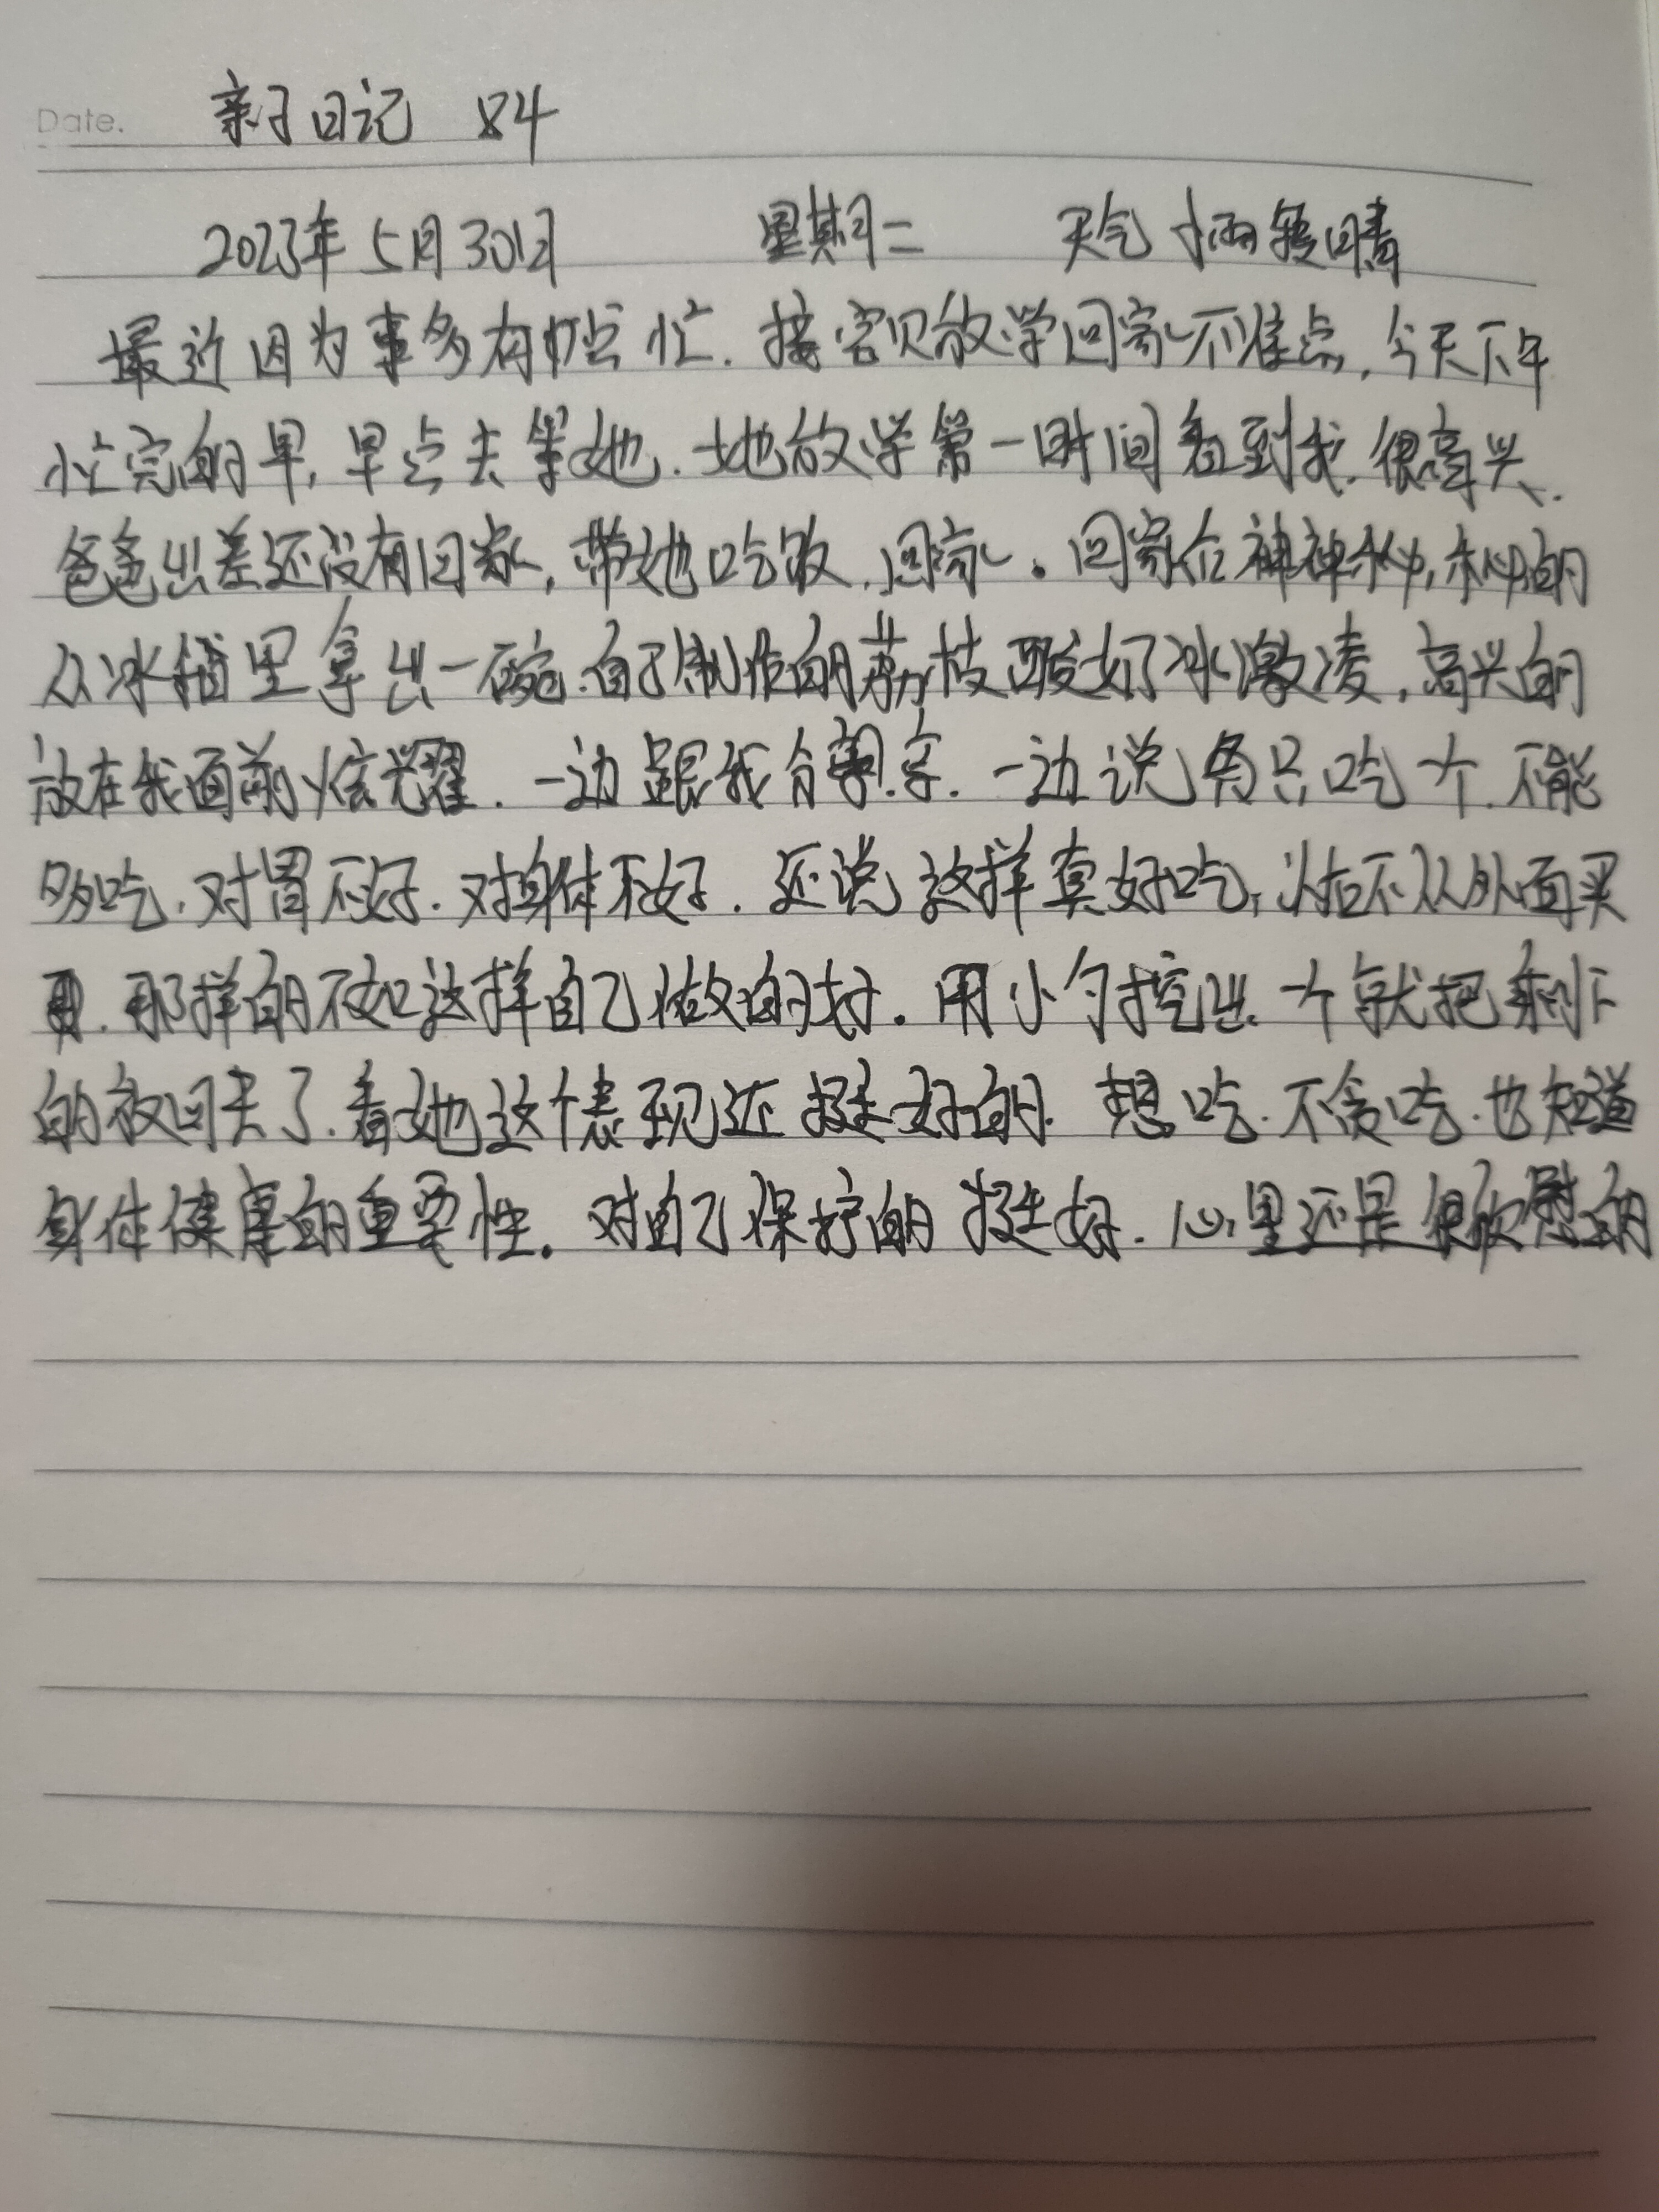 Date. 亲子日记 84
2023年5月30日 星期二 天气 小雨转晴
最近因为事多有点忙.接宝贝放学回家不准点,今天下午
忙完的早,早点去等她.她放学第一时间看到我.很高兴.
爸爸出差还没有回家,带她吃饭,回家。回家后神神秘秘的
从冰箱里拿出一碗自己制作的荔枝酸奶冰激凌,高兴的
放在我面前炫耀.一边跟我分享.一边说只吃一个.不能
多吃.对胃不好.对身体不好.还说这样真好吃,以后不从外面买
.那样的不如这样自己做的好.用小勺挖出一个就把剩下
的放回去了.看她这个表现还挺好的.想吃.不贪吃.也知道
身体健康的重要性.对自己保护的挺好.心里还是很欣慰的